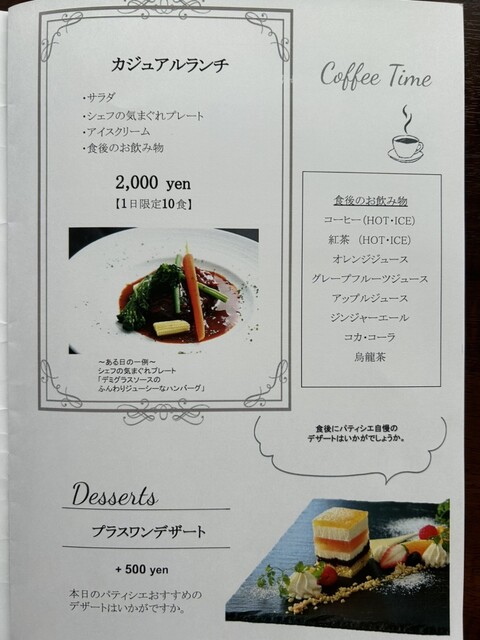 カジュアルランチ
・サラダ
・シェフの気まぐれプレート
・アイスクリーム
・食後のお飲み物
2,000 yen
【1日限定10食】
～ある日の一例～
シェフの気まぐれプレート
「デミグラスソースの
ふんわりジューシーなハンバーグ」
Coffee Time
食後のお飲み物
コーヒー（HOT・ICE）
紅茶 （HOT・ICE）
オレンジジュース
グレープフルーツジュース
アップルジュース
ジンジャーエール
コカ・コーラ
烏龍茶
食後にパティシエ自慢の
デザートはいかがでしょうか。
Desserts
プラスワンデザート
+ 500 yen
本日のパティシエおすすめの
デザートはいかがですか。